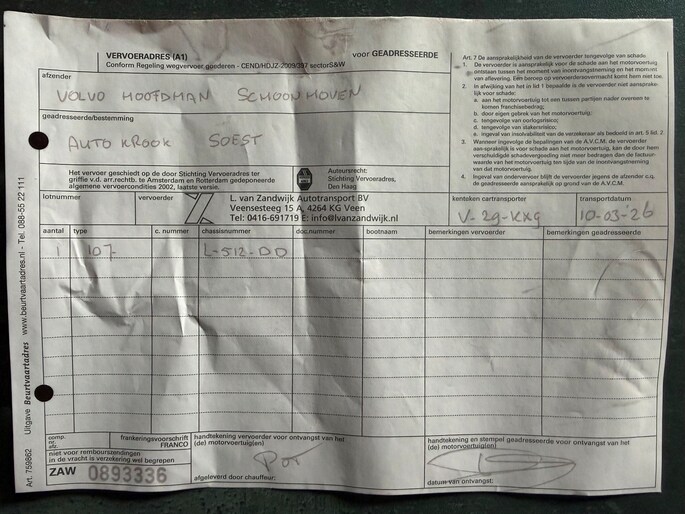 VERVOERADRES (A1)
Conform Regeling wegvervoer goederen - CEND/HDJZ-2009/387 sectorS&W
voor GEADRESSEERDE
afzender
VOLVO HOOFDMAN SCHOONHOVEN
geadresseerde/bestemming
AUTO KROOK SOEST
Het vervoer geschiedt op de door Stichting Vervoeradres ter
griffie v.d. arr.rechtb. te Amsterdam en Rotterdam gedeponeerde
algemene vervoercondities 2002, laatste versie.
Auteursrecht:
Stichting Vervoeradres,
Den Haag
Art. 7 De aansprakelijkheid van de vervoerder tengevolge van schade.
1. De vervoerder is aansprakelijk voor schade aan het motorvoertuig
ontstaan tussen het moment van inontvangstneming en het moment
van aflevering. Een beroep op vervoerdersovermacht komt hem niet toe.
2. In afwijking van het in lid 1 bepaalde is de vervoerder niet aansprake-
lijk voor schade:
a. aan het motorvoertuig tot een tussen partijen nader overeen te
komen franchisebedrag;
b. door eigen gebrek van het motorvoertuig;
c. tengevolge van oorlogsrisico;
d. tengevolge van stakersrisico;
e. ingeval van insolvabiliteit van de verzekeraar als bedoeld in art. 5 lid 2.
3. Wanneer ingevolge de bepalingen van de A.V.C.M. de vervoerder
aansprakelijk is voor schade aan het motorvoertuig, kan de door hem
verschuldigde schadevergoeding niet meer bedragen dan de factuur-
waarde van het motorvoertuig ten tijde van de inontvangstneming
van dat motorvoertuig.
4. Ingeval van ondervervoer blijft de vervoerder jegens de afzender c.q.
de geadresseerde aansprakelijk op grond van de A.V.C.M.
lotnummer
vervoerder
L. van Zandwijk Autotransport BV
Veensesteeg 15 A, 4264 KG Veen
Tel: 0416-691719 E: info@lvanzandwijk.nl
kentaken cartransporter
V-29-KXG
transportdatum
10-03-26
aantal type c. nummer chassisnummer doc.nummer bootnaam bemerkingen vervoerder bemerkingen geadresseerde
1 107- L-512-DD
comp.
nr.
afz.
frankeringsvoorschrift
FRANCO
niet voor rembourszendingen
in de vracht is verzekering wel begrepen
ZAW 0893336
handtekening vervoerder voor ontvangst van het
(de) motorvoertuig(en)
afgeleverd door chauffeur:
handtekening en stempel geadresseerde voor ontvangst van het
(de) motorvoertuig(en)
datum van ontvangst:
Art. 759862 Uitgave Beurtvaartadres www.beurtvaartadres.nl - Tel. 088-55 22 111